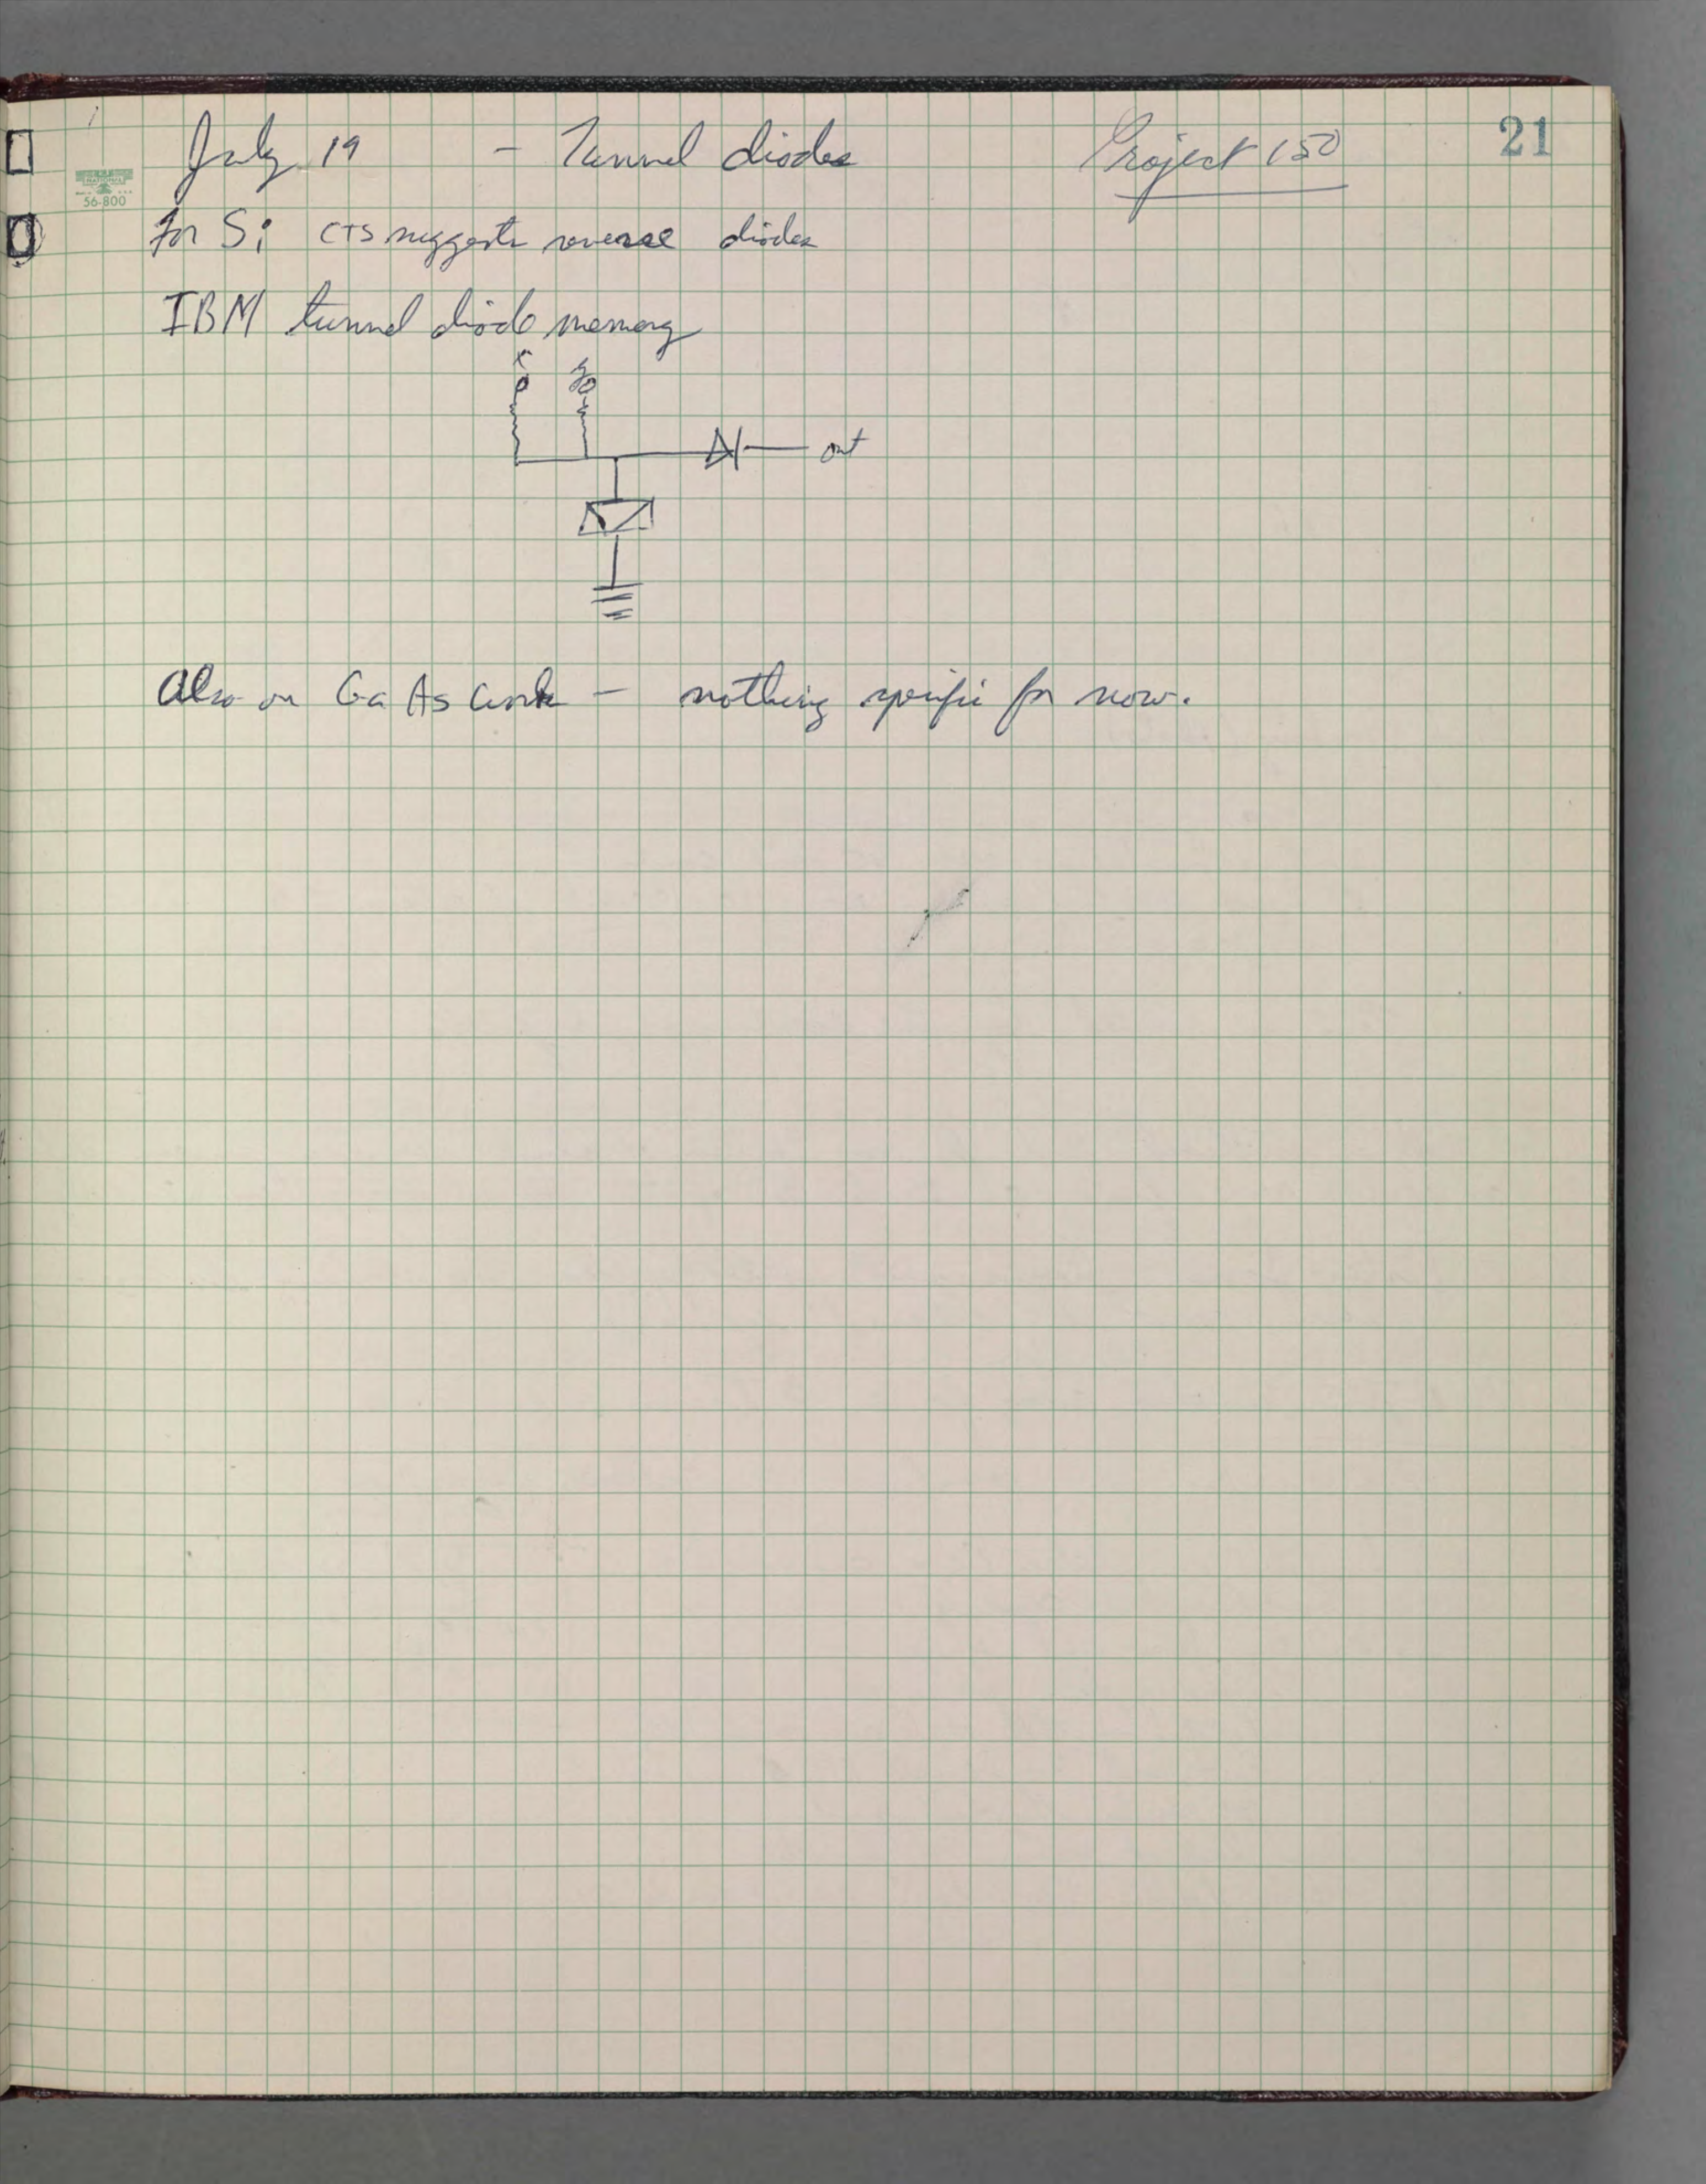 July 19 - Tunnel diodes Project 150 21
NATIONAL
56-800
For Si CTS suggests reverse diodes
IBM tunnel diode memory
x y
out
Also on GaAs work - nothing specific for now.